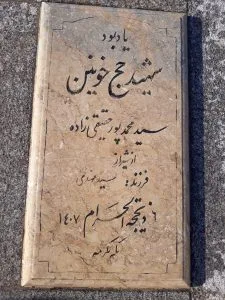 یادبود
شهید حج خونین
سید محمد پور حقیقی زاده
از شیراز
فرزند: سید مهدی
۶ ذیحجه الحرام ۱۴۰۷
مکه مکرمه